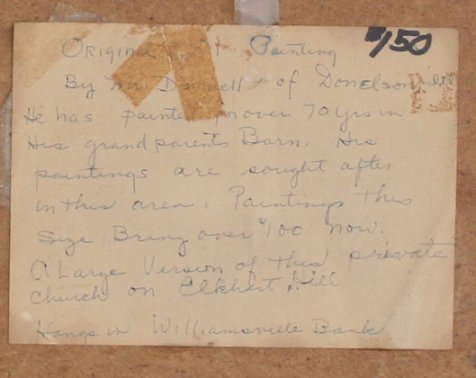 Original Painting
$150
By Mr. of Donelson, Ill
He has painted for over 70 yrs in
His grandparents Barn. His
paintings are sought after
in this area. Paintings this
Size Bring over $100 now.
A Large Version of this private
church on Elkhart Hill
Hangs in Williamsville Bank